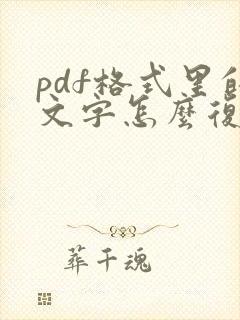 pdf格式里的
文字怎麼復
葬千魂